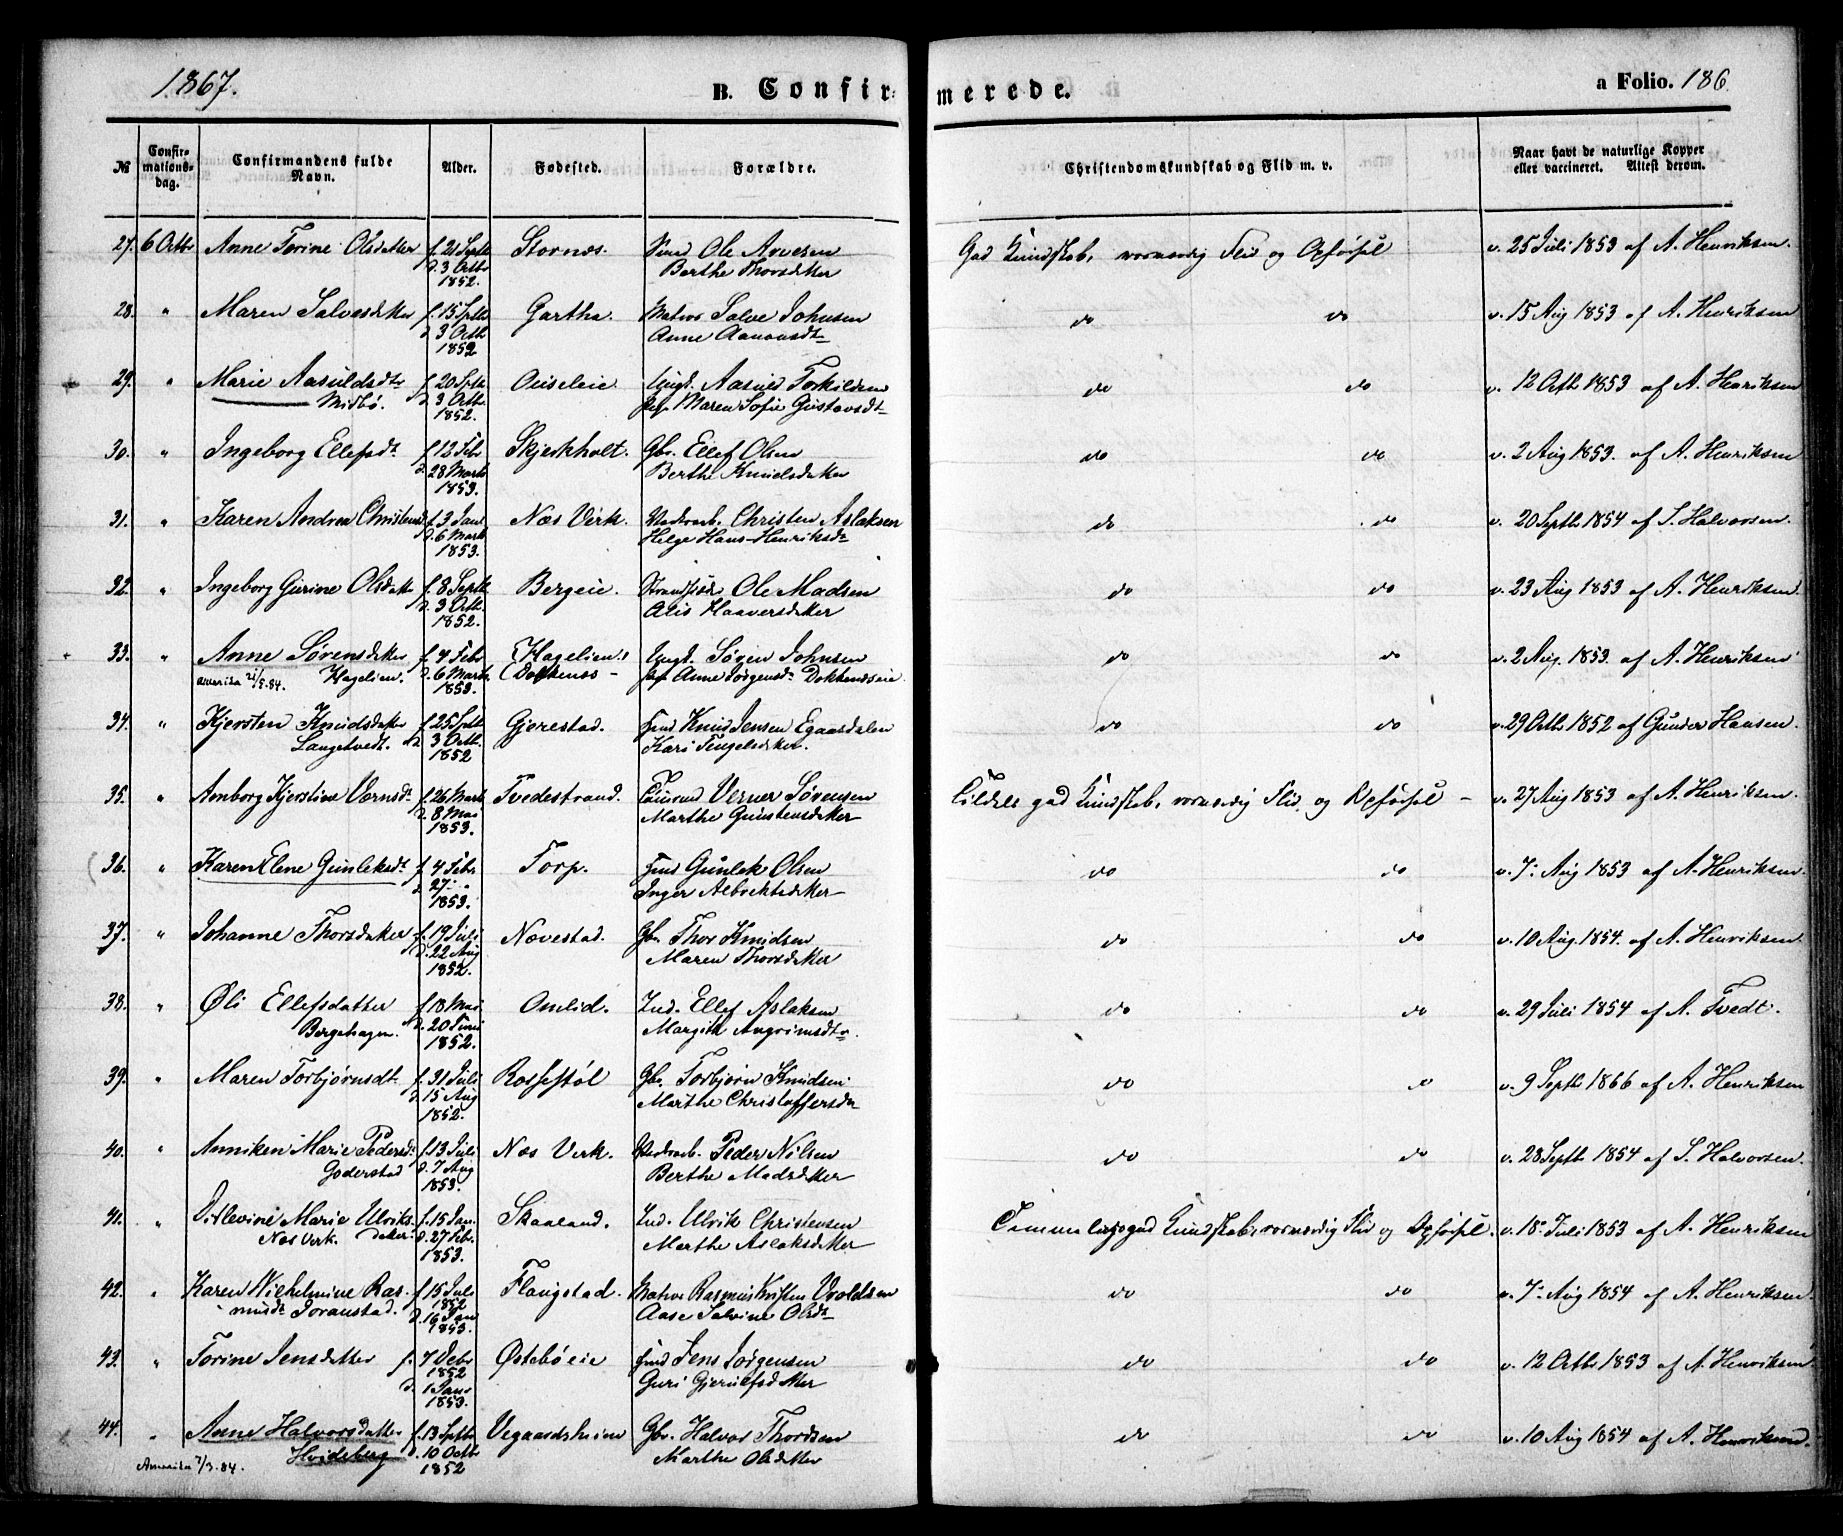 1867.
B. Confirmerede.
a Folio. 186
№ Confirmationsdag. Confirmandens fulde Navn. Alder. Fødested. Forældre. Christendomskundskab og Flid m. v. Naar havt de naturlige Kopper eller vaccineret. Attest derom.
27. 6 Octbr Anne Torine Olsdatter f. 21 Septb Stornæs. Ole Arvesen God Kundskab, Flid og Opførsel v. 25 Juli 1853 af A. Henriksen.
d. 3 Octbr Berthe Thorsdatter
1852.
28. " Maren Salvesdatter f. 15 Septb Gartha. Matros Salve Johnsen do do v. 15 Aug 1853 af A. Henriksen
d. 3 Octb Anne Aanonsdt
1852
29. " Marie Aasuldsdtr f. 20 Septb Ouseleie Aasuld Torkildsen do do v. 12 Octb 1853 af A. Henriksen
Midbø. d. 3 Octb. Maren Sofie Gustavsdt
1852.
30. " Ingeborg Ellefsdt f. 12 Febr Skjerkholt. Gbr. Ellef Olsen do do v. 2 Aug 1853. af A. Henriksen
d. 28 Marts Berthe Knudsdatter
1853.
31. " Karen Andrea Christensd f. 3 Janr Næs Verk. Christen Aslaksen do do v. 20 Septb 1854 af S. Halvorsen.
d. 6 Marts Helge Hans-Henriksdt
1853.
32. " Ingeborg Gurine Olsdatt f. 8 Septb Bergeie. Ole Madsen do do v. 23 Aug 1853 af A. Henriksen.
d. 3 Octb. Alis Haaversdatter
1852.
33. " Anne Sørensdatter f. 4 Febr Hagelien Søren Johnsen do do v. 2 Aug. 1853. af A. Henriksen
Amerika 21/5.84. Hagelien. d. 6 Marts Dokkenæs- Anne Jørgensdt Dokkenæseie
1853.
34. " Kjersten Knudsdatter f. 25 Septb Gjerestad. Knud Jensen Egaasdalen do do v. 29 Octb 1852 af Gunder Hansen.
Langetvedt. d. 3 Octb. Kari Tengelsdatter.
1852
35. " Anborg Kjerstine Værnsdt f. 26 Marts Tvedestrand. Verner Sørensen god Kundskab, Flid, og Opførsel - v. 27 Aug 1853 af A. Henriksen.
d. 8 Mai Marthe Gunstensdatter
1853.
36. " Karen Elene Gunleksdt f. 4 Febr. Torp. Gunlek Olsen do do v. 7. Aug 1853 af A. Henriksen.
d. 27. " Inger Albrektsdatter
1853.
37. " Johanne Thorsdatter f. 19 Juli Nævestad. Gbr. Thor Knudsen do do v. 10 Aug. 1854. af A. Henriksen.
d. 22 Aug Maren Thorsdatter
1852.
38. " Øli Ellefsdatter f. 18 Mai Omlid. Ind. Ellef Aslaksen do do v. 29 Juli 1854 af A. Tvedt.
Bergehagen. d. 20 Juni Margith
1852.
39. " Maren Torbjørnsdt f. 31 Juli Rossestøl Gbr. Torbjørn Knudsen. do do v. 9 Septb 1866 af A. Henriksen
d. 15 Aug Marthe Christoffersdr
1852.
40. " Anniken Marie Pedersdt f. 13 Juli Næs Verk. Peder Nilsen do do v. 28 Septb 1854 af S. Halvorsen.
Goderstad d. 7 Aug Berthe Madsdatter
1853.
41. " Ditlevine Marie Ulriks- f. 15 Jan. Skaaland. Ind. Ulrik Christensen god Kundskab, Flid og Opførsel. v. 18 Juli 1853 af A. Henriksen
Næs Verk. datter. d. 27 Febr. Marthe Aslaksdatter
1853.
42. " Karen Wilhelmine Ras- f. 15 Juli Flougstad. Matros Rasmus do do v. 7. Aug 1854 af A. Henriksen.
musdt 1852 Aase Salvine Olsdt
d. 16 Jan
1853.
43. " Torine Jensdatter f. 7 Debr Østebøeie Jens Jørgensen do do v. 12 Octb 1853 af A. Henriksen
1852 Guri Gjerulfsdatter
d. 1 Janr
1853.
44. " Anne Halvorsdatter f. 13 Septb Vegaardsheien Gbr. Halvor Thordsen do do v. 10 Aug 1854 af A. Henriksen.
Amerika 7/3.84. Heideberg d. 10 Octbr Marthe Olsdatter
1852